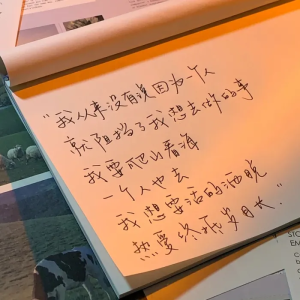 “我从来没有说因为一个人
就阻挡了我想去做的事
我要爬山看海
一个人也去
我想要活的洒脱
热爱终抵岁月长”